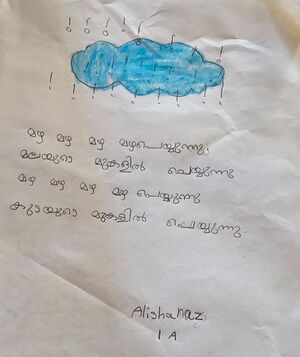 മഴ മഴ മഴ മഴപെയ്യുന്നു.
മലയുടെ മുകളിൽ പെയ്യുന്നു
മഴ മഴ മഴ മഴ പെയ്യുന്നു
കുടയുടെ മുകളിൽ പെയ്യുന്നു.
Alishanaz.
1 A